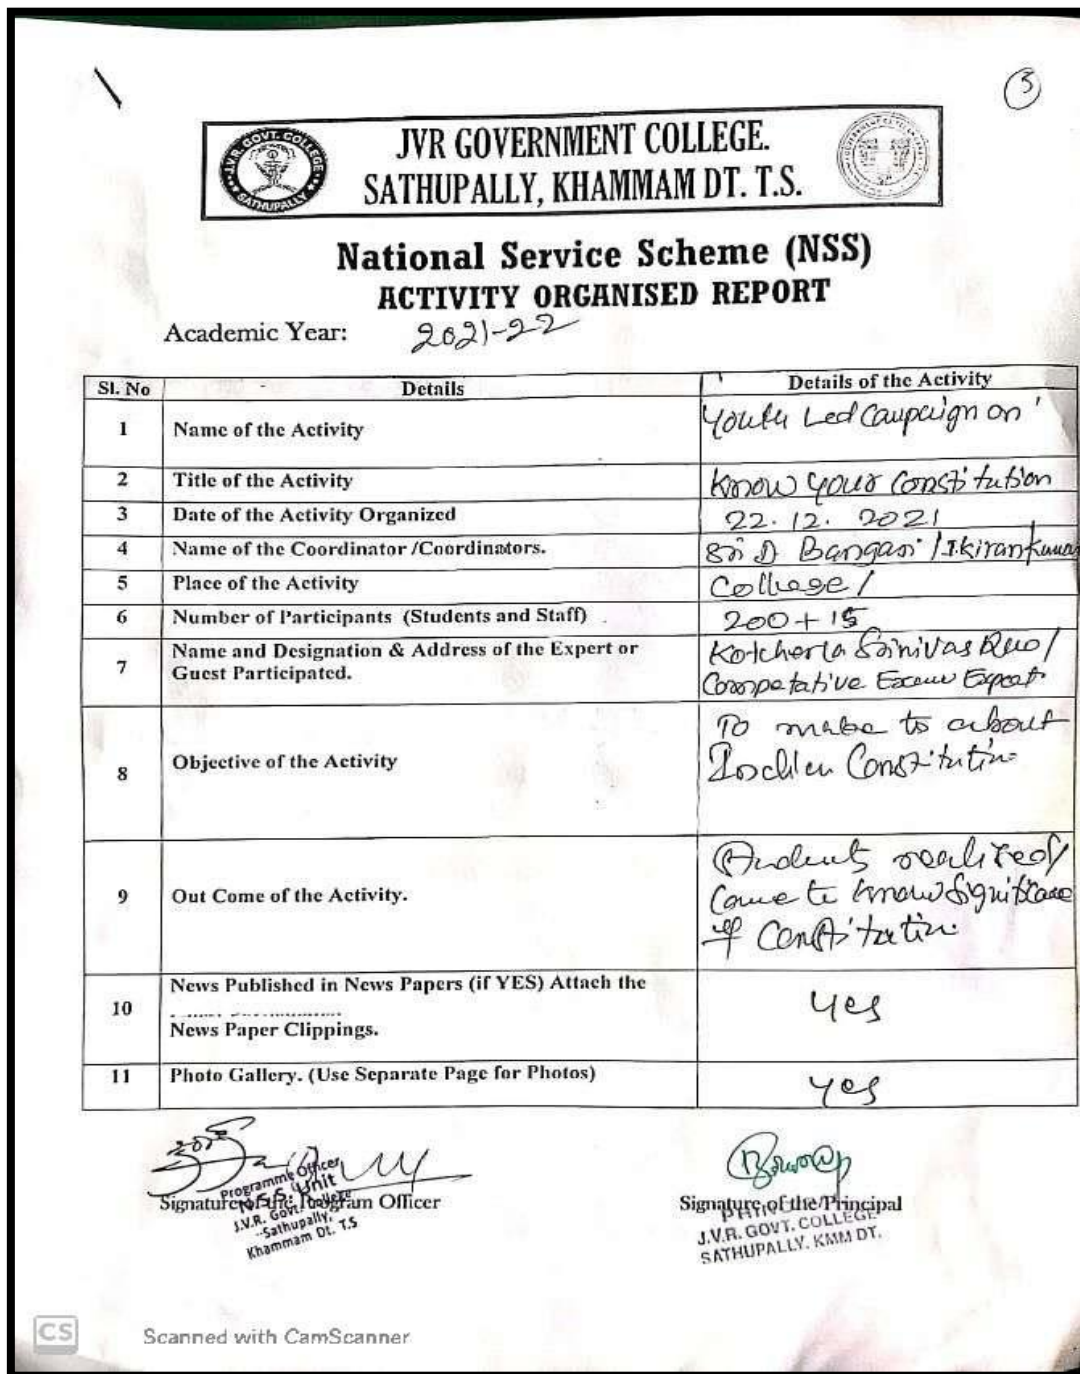 3
JVR GOVERNMENT COLLEGE.
SATHUPALLY, KHAMMAM DT. T.S.
J.V.R. GOVT. COLLEGE
SATHUPALLY
National Service Scheme (NSS)
ACTIVITY ORGANISED REPORT
Academic Year: 2021-22
Sl. No Details Details of the Activity
1 Name of the Activity Youth Led Campaign on
2 Title of the Activity Know your Constitution
3 Date of the Activity Organized 22.12.2021
4 Name of the Coordinator /Coordinators. Sri D Bangari / I.kirankumar
5 Place of the Activity College/
6 Number of Participants (Students and Staff) . 200+15
7 Name and Designation & Address of the Expert or Kotcherla Srinivas Rao/
Guest Participated. Competative Exam Expert
8 Objective of the Activity To make to about
Indian Constitution
9 Out Come of the Activity. Students realized/
Come to know Significance
of Constitution
10 News Published in News Papers (if YES) Attach the yes
News Paper Clippings.
11 Photo Gallery. (Use Separate Page for Photos) yes
Signature of the Program Officer Signature of the Principal
Programme Officer
N.S.S. Unit
J.V.R. Govt. College
Sathupally,
Khammam Dt. T.S
PRINCIPAL
J.V.R. GOVT. COLLEGE
SATHUPALLY. KMM DT.
CS Scanned with CamScanner